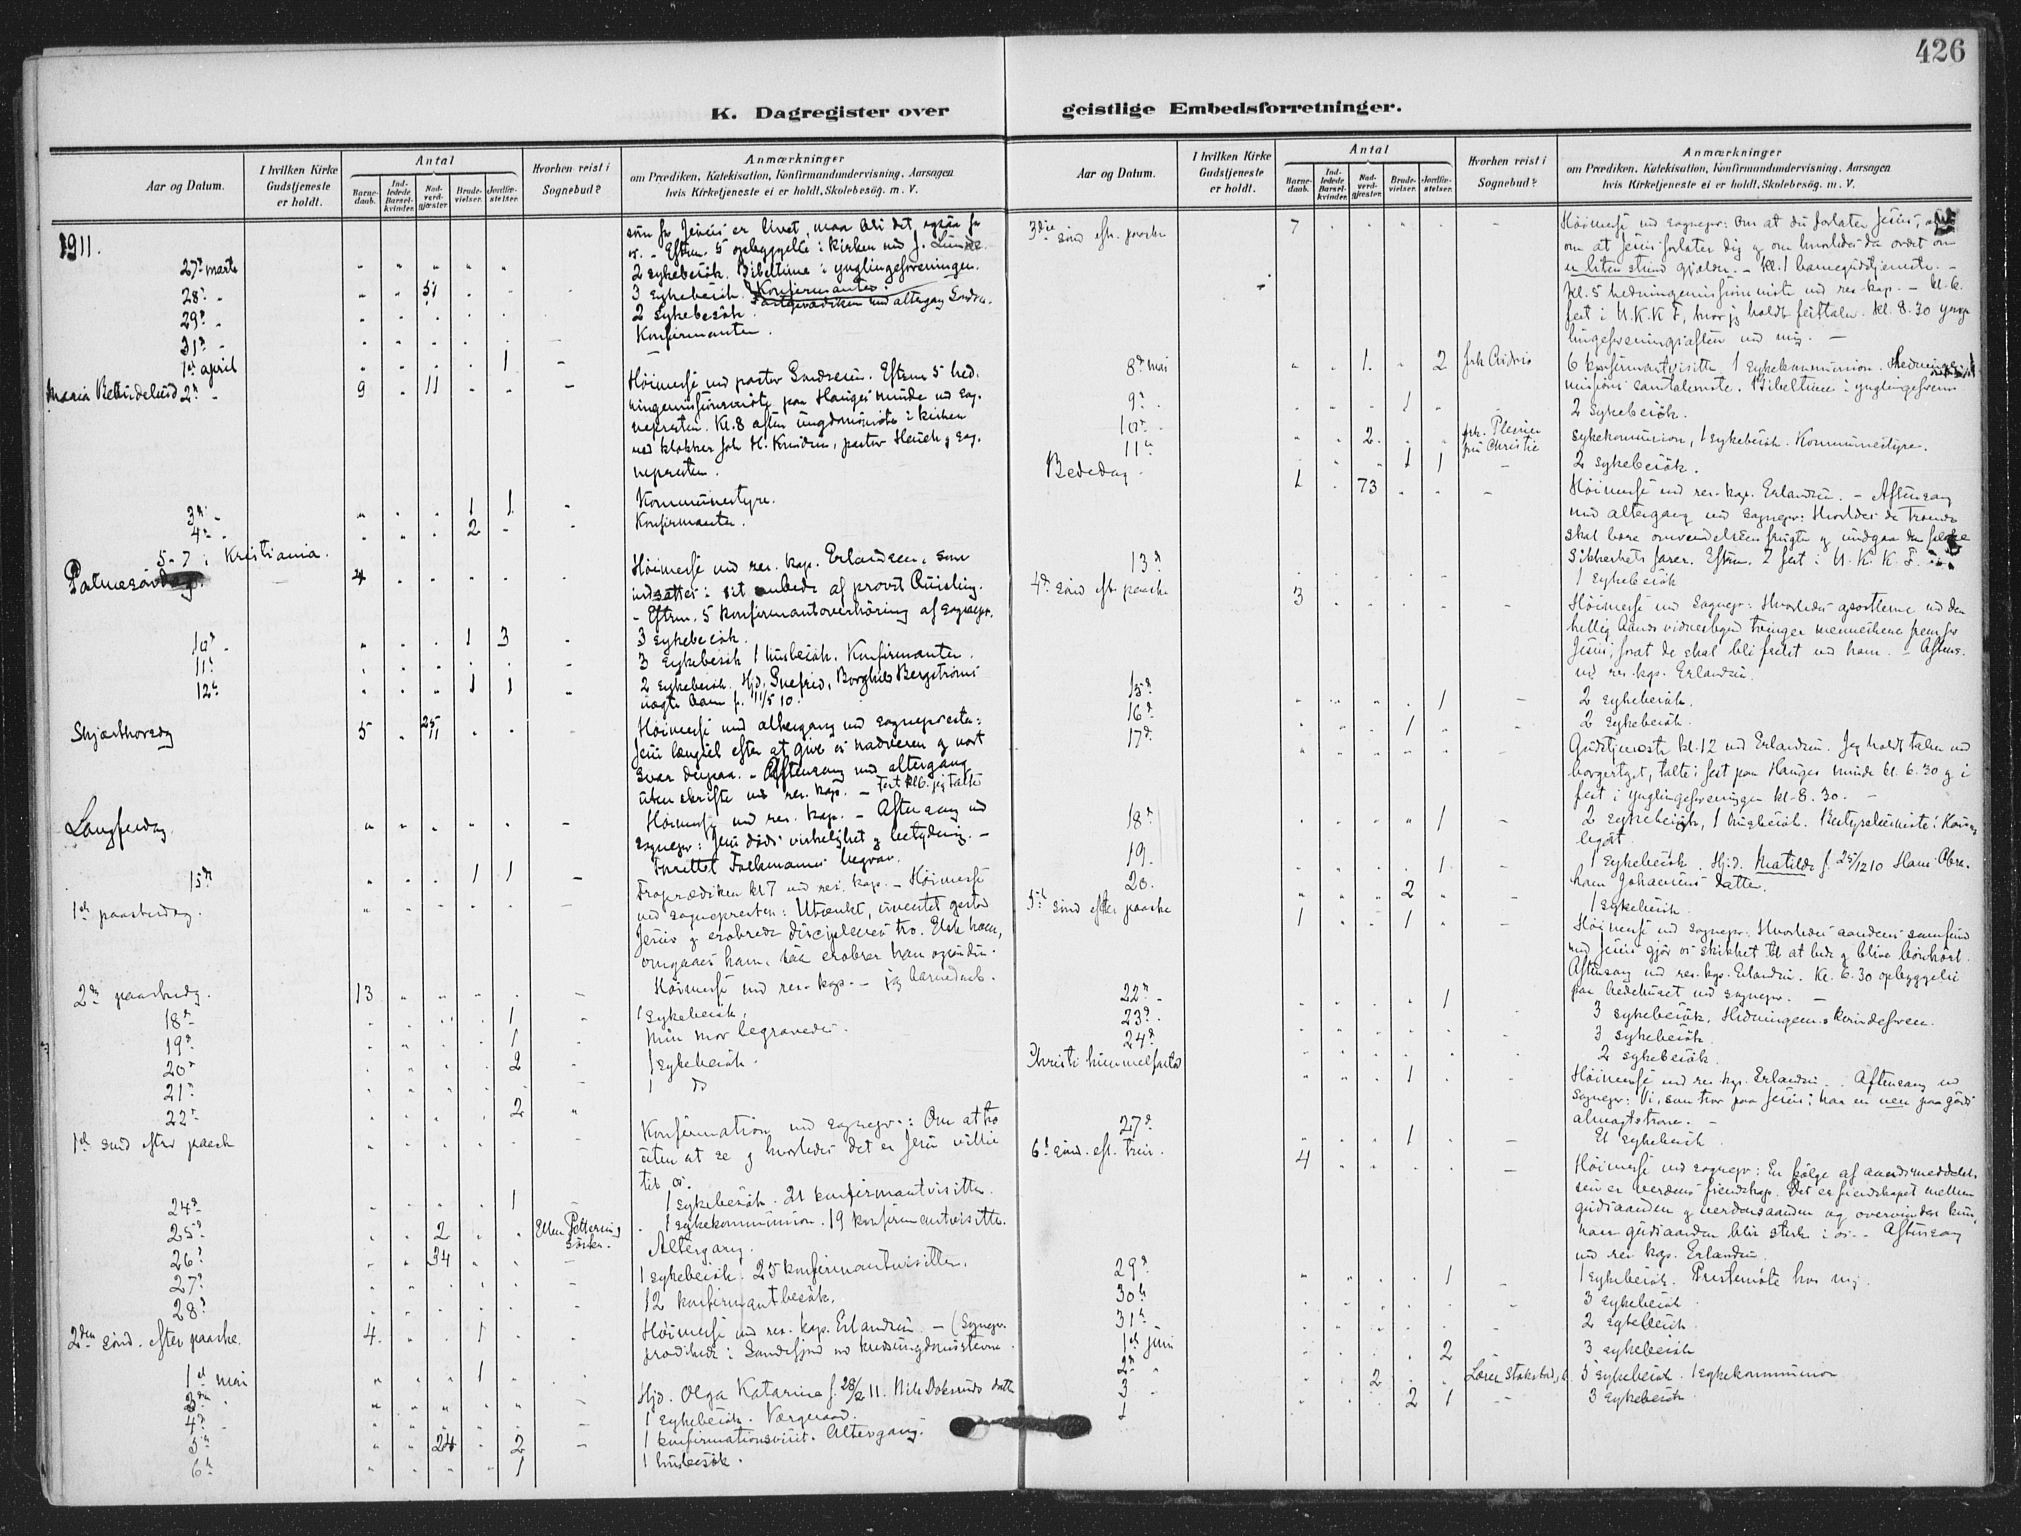 426
K. Dagregister over geistlige Embedsforretninger.
Aar og Datum.
I hvilken Kirke Gudstjeneste er holdt.
Antal
Barnedaab.
Indledede Barselkvinder.
Nadverdgjæster.
Brudevielser.
Jordfæstelser.
Hvorhen reist i Sognebud?
Anmærkninger
om Prædiken, Katekisation, Konfirmandundervisning, Aarsagen
hvis Kirketjeneste ei er holdt, Skolebesøg. m. V.
1911.
søn for Jesus er livet, maa bli det ogsaa for
os. - Efterm. 5 opbyggelse i kirken ved J. Lunde.
27de marts
2 sykebesøk. Bibeltime i ynglingeforeningen.
28de 51 3 sykebesøk. Konfirmanter.
Fasteprædiken med altergang
29de 2 sykebesøk.
31te Konfirmanter.
1ste april 1
Maria Bebudelsesd 2den 9 11 Høimesse ved pastor Gondesen. Efterm 5 hed.
ningemissionsmøte paa Hauges minde ved sog.
nepresten. Kl. 8 aften ungdomsmøte i kirken
ved klokker Joh H. Knudsen, pastor Hauch og sog.
nepresten.
3die 1 1 Kommunestyre.
4de 2 Konfirmanter.
5-7 i Kristiania.
Palmesøndag. 4 Høimesse ved res. kap. Erlandsen, som
indsattes i sit embede af provst Quisling.
- Efterm. 5 konfirmantoverhøring af sognepr.
10de 1 3 3 sykebesøk.
11te 3 sykebesøk 1 husbesøk. Konfirmanter.
12te 1 1 2 sykebesøk. Hjd. Snefrid, Borghild Bergstrøms
uægte barn f. 11/5 10.
Skjærthorsdag 5 25 11 Høimesse med altergang ved sognepresten:
Jesu længsel efter at give os nadveren og vort
svar derpaa. - Aftensang med altergang
uten skrifte ved res. kap. - Fest kl 6. jeg talte
Langfredag. Høimesse ved res. kap. - Aftensang ved
sognepr: Jesu døds virkelighet og betydning. -
15de 1 1 Forrettet Falkmans begrav.
1ste paaskedag. Froprædiken kl 7 ved res. kap. - Høimesse
ved sognepresten: Utænkt, uventet gestod
Jesus og erobrede disciplenes tro. Elsk ham,
omgaaes ham, saa erobrer han ogsaa din.
2den paaskedag. 13 Høimesse ved res. kap. - 13 barnedaab.
18de 1 1 sykebesøk.
19de 1 Min mor begravedes.
20de 2 1 sykebesøk.
21de 1 Do
22de 2
1ste sønd efter paaske Konfirmation ved sognepr.: Om at tro
uten at se og hvorledes det er Jesu vilje
til os.
24de 1 1 sykebesøk. 21 konfirmantvisitter.
25de 2 Ellen Pottering 1 sykekommunion. 19 konfirmantvisitter.
26de 34 Altergang.
27de 1 sykebesøk. 25 konfirmantvisitter.
28de 12 konfirmantbesøk.
2den sønd. efter paaske. 4 1 Høimesse ved res. kap. Erlandsen. - (Sognepr.
prædikede i Sandefjord ved kredsungdomsstevne.
1ste mai 1 Hjd. Olga Katarina f. 28/2 11. Nils datter
3die 1 sykebesøk. Værgeraad.
4de 1 konfirmationsvisit. Altergang.
5te 24 2 1 husbesøk.
6te 1
Aar og Datum.
I hvilken Kirke Gudstjeneste er holdt.
Antal
Barnedaab.
Indledede Barselkvinder.
Nadverdgjæster.
Brudevielser.
Jordfæstelser.
Hvorhen reist i Sognebud?
Anmærkninger
om Prædiken, Katekisation, Konfirmandundervisning, Aarsagen
hvis Kirketjeneste ei er holdt, Skolebesøg. m. V.
3die sønd eft. paaske 7 Høimesse ved sognepr: Om at du forlater Jesus,
om at Jesus forlater dig og om hvorledes da ordet om
en liten stund gjælder. - Kl. 1 barnegudstjeneste. -
Kl. 5 hedningemissionsmøte ved res. kap. - Kl. 6.
fest i U.K.K.F, hvor jeg holdt festtalen. Kl. 8.30 yng
lingeforeningsaften ved mig. -
8de mai 1 2 6 konfirmantvisitter 1 sykekommunion. Hedninge.
missions samtalemøte. Bibeltime i ynglingeforen
9de 1 2 sykebesøk.
10de 2 frk. Plesner fru Christie sykekommunion, 1 sykebesøk. Kommunestyre.
11te 1 1 2 sykebesøk.
Bededag 1 73 Høimesse ved res. kap. Erlandsen. - Aftensang
med altergang ved sognepr: Hvorledes de troende
skal bære omvendelsens frugter og undgaa den falske
sikkerhets farer. Efterm. 7 fest i U.K.K.F.
13de 1 sykebesøk
4de sønd eft. paaske 3 Høimesse ved sognepr: Hvorledes apostlerne ved den
hellig Aands vidnesbyrd tvinger menneskene frem for
Jesus, forat de skal bli frelst ved ham. - Aftens.
ved res. kap. Erlandsen.
15de 1 2 sykebesøk.
16de 1 2 sykebesøk.
17de Gudstjeneste kl. 12 ved Erlandsen. Jeg holdt talen ved
borgertoget, talte i fest paa Hauges minde kl. 6.30 og i
fest i ynglingeforeningen kl. 8.30. -
18de 1 2 sykebesøk, 1 husbesøk. Bestyrelsesmøte i
19. 1 1 sykebesøk. Hjd. Matilde f. 25/12 10 Hans Abra.
ham Johansens datter.
20. 2 1 sykebesøk.
5te sønd efter paaske 1 1 Høimesse ved sognepr: Hvorledes aandens samfund
med Jesus gjør os skikket til at bede og blive bønhørt.
Aftensang ved res. kap. Erlandsen. Kl. 6.30 opbyggelse
paa bedehuset ved sognepr. -
22de 1 3 sykebesøk. Hedningem. Kvindeforen.
23de 3 sykebesøk.
24de 2 sykebesøk.
Christi himmelfartsd 1 Høimesse ved res. kap. Erlandsen. Aftensang ved
sognepr: Vi, som tror paa Jesus, har en ven paa Guds
almagtstrone. -
27de 1 Et sykebesøk
6te sønd. eft. 4 Høimesse ved sognepr: En følge af aandsmeddelel.
sen er verdens fiendskap. Det er fiendskapet mellem
gudsaanden og verdensaanden og overvindes kun,
naar gudsaanden blir sterk i os. - Aftensang
ved res. kap. Erlandsen.
29de 1 1 sykebesøk. Prestemøte hos mig.
30te 3 sykebesøk
31te 2 sykebesøk
1ste juni 2 3 sykebesøk
2den 2 5 sykebesøk. 1 sykekommunion
3 2 1 3 sykebesøk